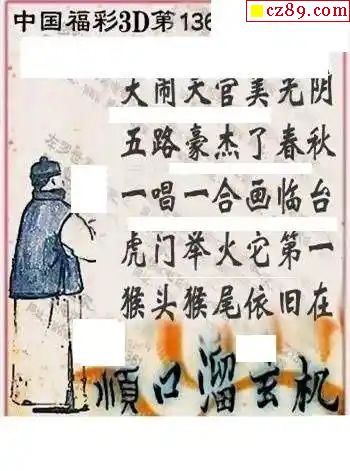 cz89.com
中国福彩3D第136
大闹天官美光阴
五路豪杰了春秋
一唱一合画临台
虎门举火它第一
猴头猴尾依旧在
順口溜玄机